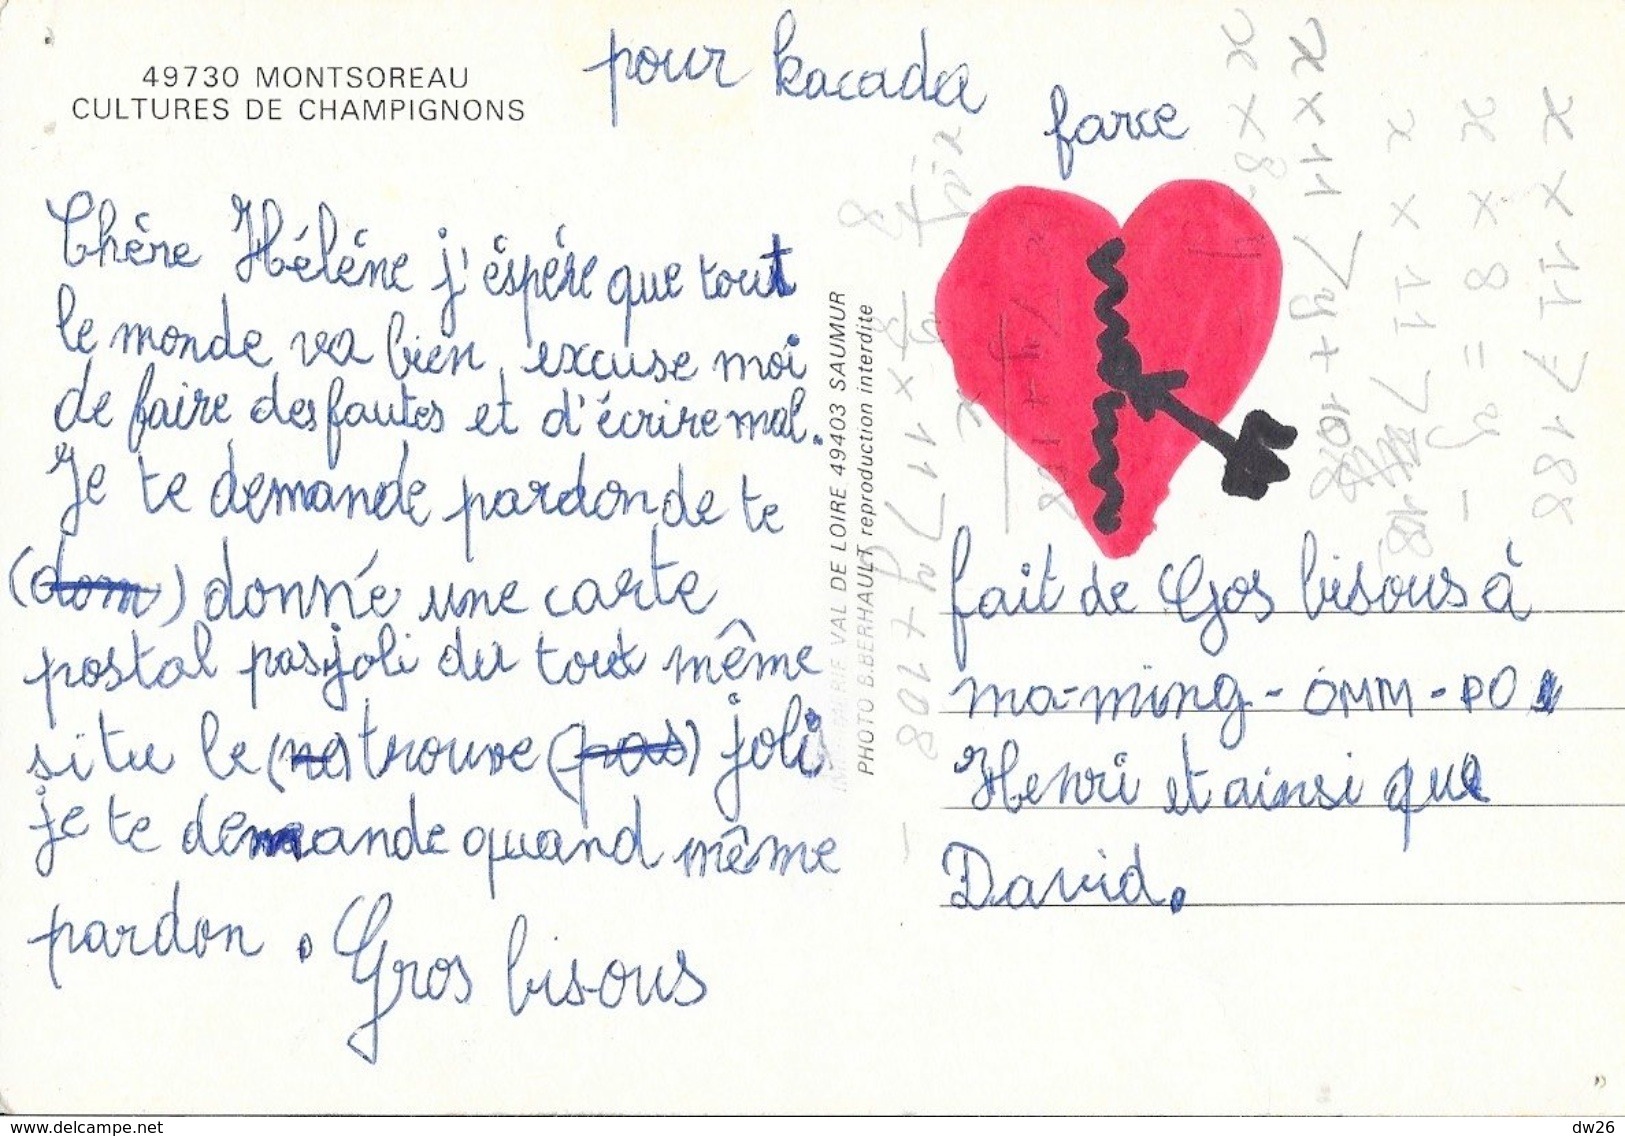 49730 MONTSOREAU
CULTURES DE CHAMPIGNONS
pour kacada
farce
Chère Hélène j'éspére que tout
le monde va bien, excuse moi
de faire des fautes et d'écrire mal.
Je te demande pardon de te
(dom) donn'e une carte
postal pas joli du tout même
si tu le (ne) trouve (pas) joli
je te demande quand même
pardon. Gros bisous
IMPRIMERIE VAL DE LOIRE 49403 SAUMUR
PHOTO B.BERHAULT reproduction interdite
fait de Gos bisous à
ma-ming-ômm-po
Henri et ainsi que
David.
x x 8
x x 11 7y + 108
x x 11 7
x x 8 = y -
x x 11 7 188
x 11 7y + 108
www.delcampe.net
dw26